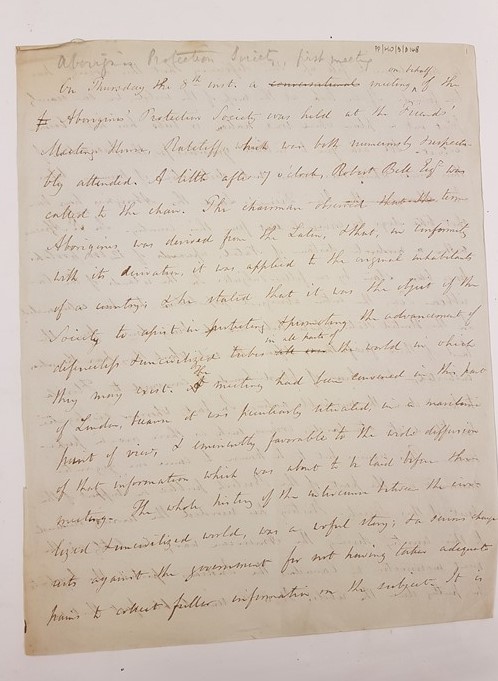 Aborigines Protection Society, first meeting
On Thursday the 8th inst. a conversational meeting on behalf of the
Aborigines' Protection Society was held at the Friends'
Meeting House, Ratcliff, which was both numerously & respecta-
bly attended. A little after 7 o'clock, Robert Bell Esqr was
called to the chair. The chairman observed that the term
Aborigines was derived from the Latin, & that, in conformity
with its derivation, it was applied to the original inhabitants
of a country; & he stated that it was the object of the
Society to assist in protecting & promoting the advancement of
defenceless & uncivilized tribes in all parts of the world in which
they may exist. The meeting had been convened in this part
of London, because it was peculiarly situated, in a maritime
point of view, & eminently favorable to the wide diffusion
of that information which was about to be laid before the
meeting. The whole history of the intercourse between the civi-
lized & uncivilized world, was a woful story; & a serious charge
acts against the government for not having taken adequate
pains to collect fuller information on the subject. It is